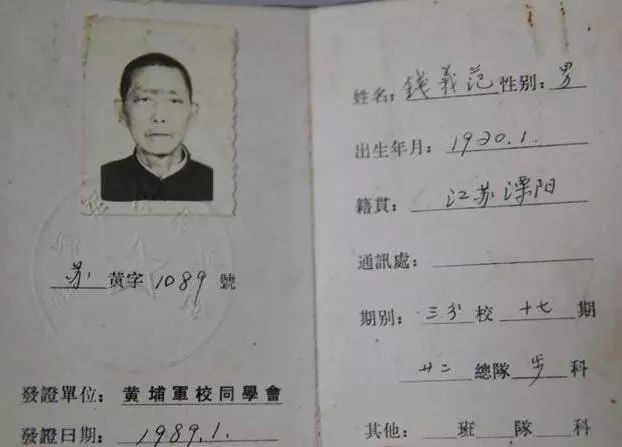 苏 黄字 1089 號
發證單位: 黄埔軍校同學會
發證日期: 1989.1.
姓名: 錢義范 性别: 男
出生年月: 1920.1.
籍貫: 江苏溧阳
通訊處:
期别: 三分校 十七 期
廿二 總隊 步 科
其他: 班 隊 科